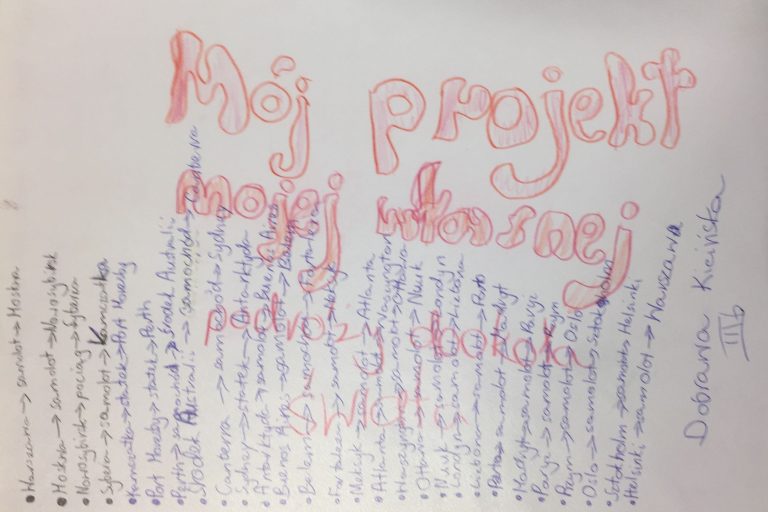 Mój projekt
mojej własnej
podróży dookoła
świata
• Warszawa → samolot → Moskwa
• Moskwa → samolot → Nowosybirsk
• Nowosybirsk → pociąg → Syberia
• Syberia → samolot → Kamczatka
• Kamczatka → statek → Port Moresby
• Port Moresby → statek → Perth
• Perth → samochód → środek Australii
• Środek Australii → samochód → Canberra
• Canberra → samochód → Sydney
• Sydney → statek → Antarktyda
• Antarktyda → samolot → Buenos Aires
• Buenos Aires → samolot →
• → samochód → Fortaleza
• Fortaleza → samolot → Meksyk
• Meksyk → samolot → Atlanta
• Atlanta → samolot → Waszyngton
• Waszyngton → samolot → Ottawa
• Ottawa → samolot → Nuuk
• Nuuk → samolot → Londyn
• Londyn → samolot → Lizbona
• Lizbona → samolot → Porto
• Porto → samolot → Madryt
• Madryt → samolot → Paryż
• Paryż → samolot → Rzym
• Rzym → samolot → Oslo
• Oslo → samolot → Sztokholm
• Sztokholm → samolot → Helsinki
• Helsinki → samolot → Warszawa
Dobrawa Kicińska
III b